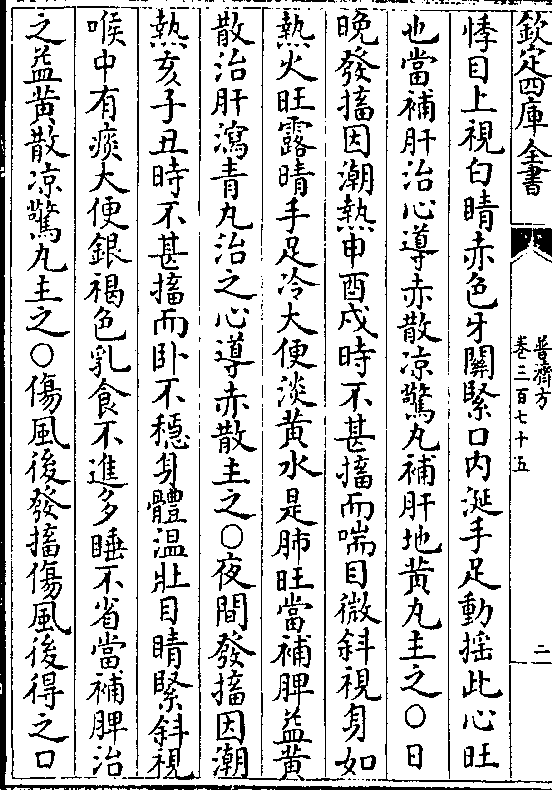 欽定四庫全書
普濟方
卷三百七十五
二
悸目上視白睛赤色牙關緊口内涎手足動揺此心旺
也當補肝治心導赤散凉驚丸補肝地黄丸主之〇日
晚發搐因潮熱申酉戌時不甚搐而喘目微斜視身如
熱火旺露睛手足冷大便淡黄水是肺旺當補脾益黄
散治肝瀉青丸治之心導赤散主之〇夜間發搐因潮
熱亥子丑時不甚搐而卧不穏身體温壯目睛緊斜視
喉中有痰大便銀褐色乳食不進多睡不省當補脾治
之益黄散凉驚丸主之〇傷風後發搐傷風後得之口